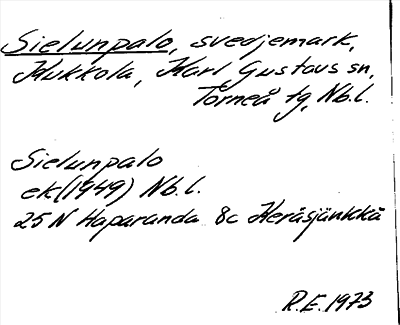 Sielunpalo, svedjemark,
Kukkola, Karl Gustavs sn,
Torneå tg, Nb.l.
Sielunpalo
ek(1949) Nb.l.
25 N Haparanda 8c Keräsjänkkä
R.E. 1973